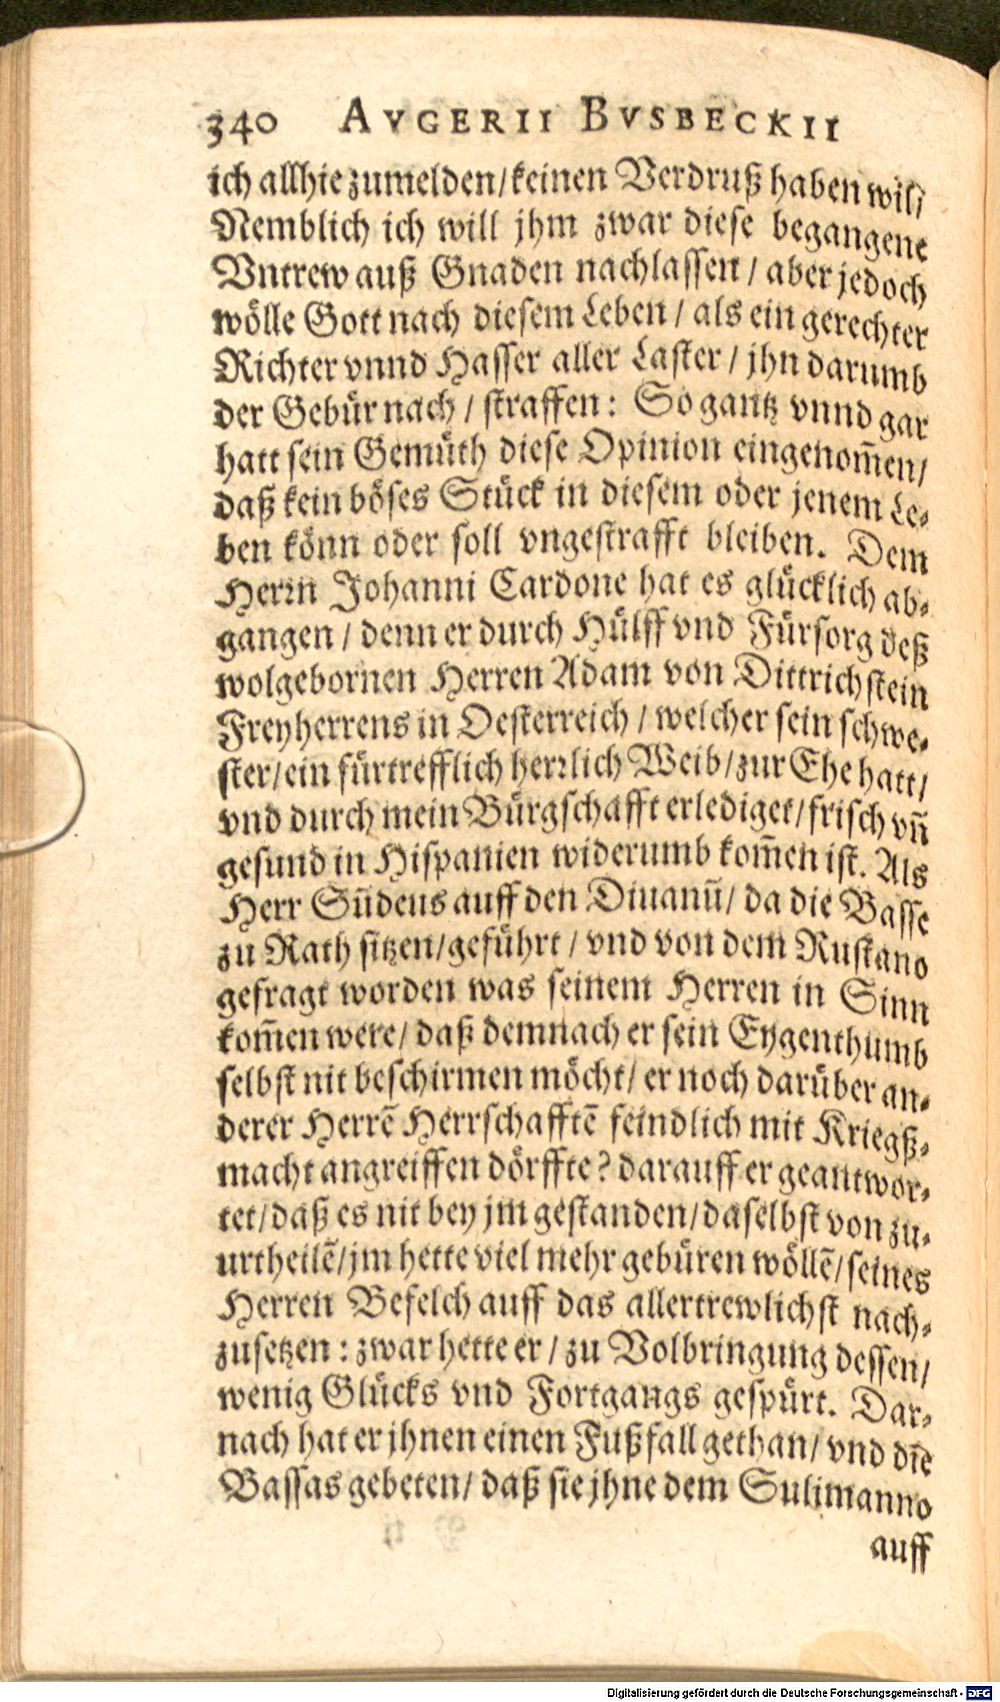 340 AVGERII BVSBECKII
ich allhie zumelden/keinen Verdruß haben will/
Nemblich ich will jhm zwar diese begangene
Vntrew auß Gnaden nachlassen / aber jedoch
wölle Gott nach diesem Leben / als ein gerechter
Richter vnnd Hasser aller Laster / jhn darumb
der Gebür nach / straffen: So gantz vnnd gar
hatt sein Gemüth diese Opinion eingenom̄en/
daß kein böses Stück in diesem oder jenem Le-
ben könn oder soll vngestrafft bleiben. Dem
Herrn Johanni Cardone hat es glücklich ab-
gangen / denn er durch Hülff vnd Fürsorg deß
wolgebornen Herren Adam von Dittrichstein
Freyherrens in Oesterreich / welcher sein schwe-
ster/ein fürtrefflich herrlich Weib/zur Ehe hatt/
vnd durch mein Bürgschafft erlediget/frisch vn̄
gesund in Hispanien widerumb kom̄en ist. Als
Herr Sūdeus auff den Diuanū/ da die Basse
zu Rath sitzen/geführt / vnd von dem Rustano
gefragt worden was seinem Herren in Sinn
kom̄en were/ daß demnach er sein Eygenthumb
selbst nit beschirmen möcht/ er noch darüber an-
derer Herrē Herrschafftē feindlich mit Kriegß-
macht angreiffen dörffte? darauff er geantwor-
tet/daß es nit bey jm gestanden/daselbst von zu-
urtheilē/jm hette viel mehr gebüren wöllē/seines
Herren Befelch auff das allertrewlichst nach-
zusetzen: zwar hette er / zu Volbringung dessen/
wenig Glücks vnd Fortgangs gespürt. Dar-
nach hat er jhnen einen Fußfall gethan/ vnd die
Bassas gebeten/ daß sie jhne dem Sulimanno
auff
Digitalisierung gefördert durch die Deutsche Forschungsgemeinschaft - DFG